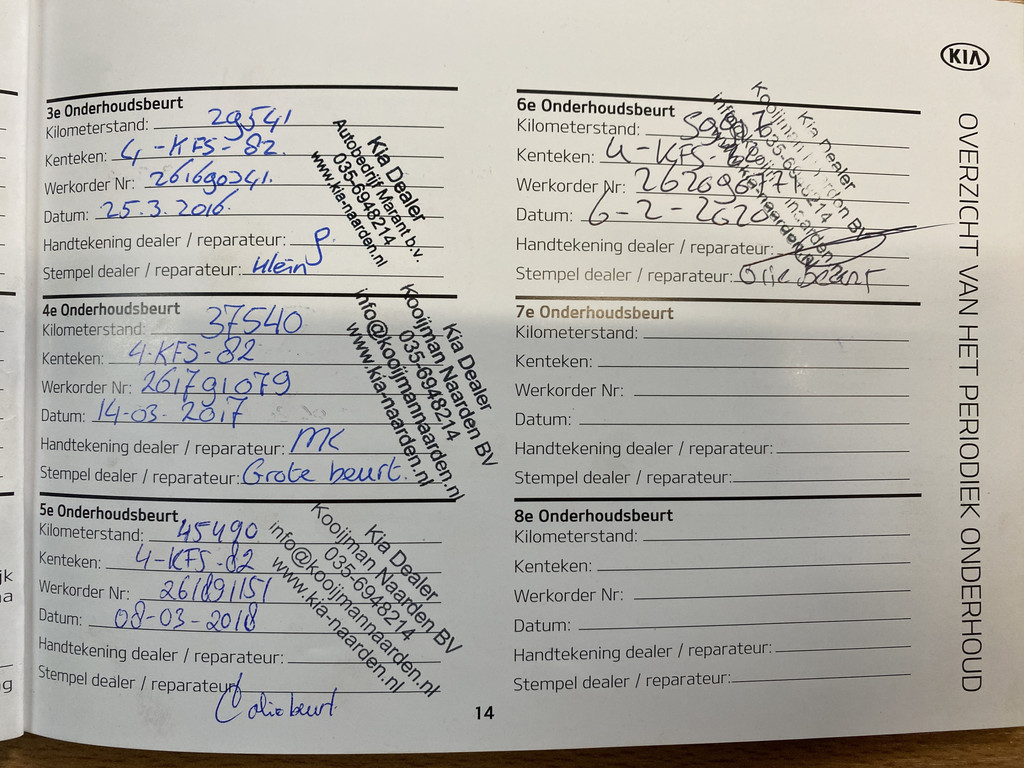 KIA
OVERZICHT VAN HET PERIODIEK ONDERHOUD
3e Onderhoudsbeurt
Kilometerstand: 29541
Kenteken: 4-KFS-82.
Werkorder Nr: 261690341.
Datum: 25.3.2016.
Handtekening dealer / reparateur:
Stempel dealer / reparateur: klein
Kia Dealer
Autobedrijf Marent b.v.
035-6948214
www.kia-naarden.nl
4e Onderhoudsbeurt
Kilometerstand: 37540
Kenteken: 4-KFS-82
Werkorder Nr: 261791079
Datum: 14-03-2017
Handtekening dealer / reparateur: MK
Stempel dealer / reparateur: Grote beurt.
Kia Dealer
Kooijman Naarden BV
035-6948214
info@kooijmannaarden.nl
www.kia-naarden.nl
5e Onderhoudsbeurt
Kilometerstand: 45490
Kenteken: 4-KFS-82
Werkorder Nr: 261891151
Datum: 08-03-2018
Handtekening dealer / reparateur:
Stempel dealer / reparateur
olie beurt
Kia Dealer
Kooijman Naarden BV
035-6948214
info@kooijmannaarden.nl
www.kia-naarden.nl
6e Onderhoudsbeurt
Kilometerstand:
Kenteken: 4-KFS-
Werkorder Nr:
Datum: 6-2-2020
Handtekening dealer / reparateur:
Stempel dealer / reparateur: Olie beurt
Kia Dealer
035-6948214
7e Onderhoudsbeurt
Kilometerstand:
Kenteken:
Werkorder Nr:
Datum:
Handtekening dealer / reparateur:
Stempel dealer / reparateur:
8e Onderhoudsbeurt
Kilometerstand:
Kenteken:
Werkorder Nr:
Datum:
Handtekening dealer / reparateur:
Stempel dealer / reparateur:
14